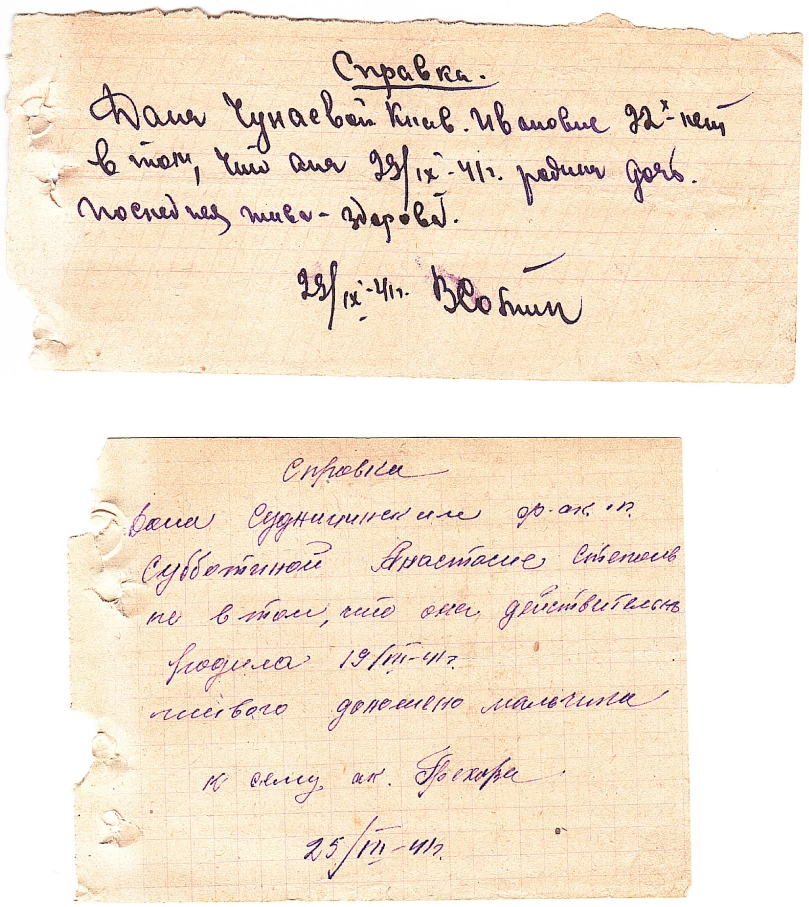 Справка.
Дана Чунаевой Клав. Ивановне 22х-лет
в том, что она 29/IX-41г. родила дочь.
последняя жива-здорова.
29/IX-41г.
Справка
Дана Судницинским ф-ак. п.
Субботиной Анастасие Степанов
не в том, что она действительно
родила 19/III-41г.
живого доношено мальчика
к сему ак. Грехова
25/III-41г.